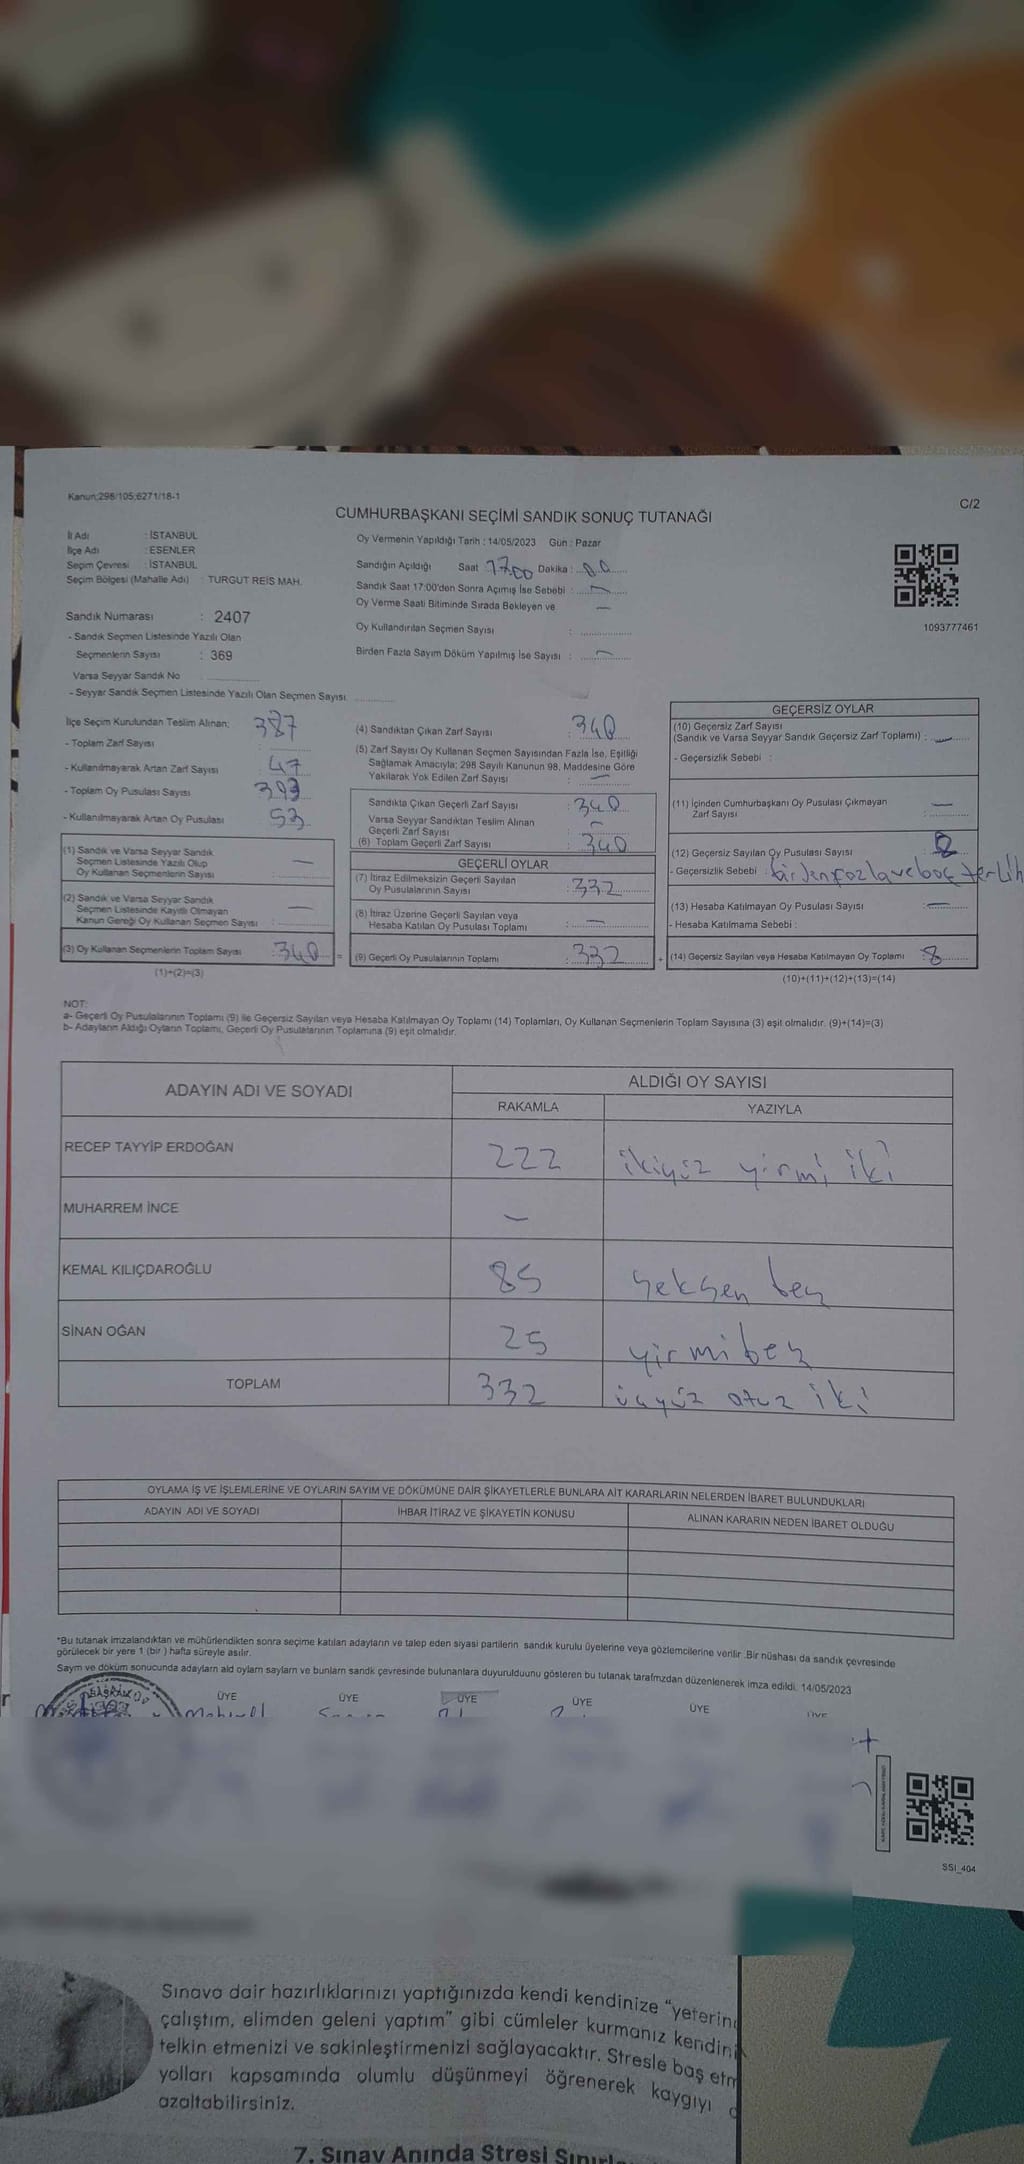 Kanun;298/105;6271/18-1
C/2
CUMHURBAŞKANI SEÇİMİ SANDIK SONUÇ TUTANAĞI
İl Adı : İSTANBUL
İlçe Adı : ESENLER
Seçim Çevresi : İSTANBUL
Seçim Bölgesi (Mahalle Adı) : TURGUT REİS MAH.
Sandık Numarası : 2407
- Sandık Seçmen Listesinde Yazılı Olan
Seçmenlerin Sayısı : 369
Varsa Seyyar Sandık No
- Seyyar Sandık Seçmen Listesinde Yazılı Olan Seçmen Sayısı
Oy Vermenin Yapıldığı Tarih : 14/05/2023 Gün : Pazar
Sandığın Açıldığı Saat : 17.00 Dakika : 00
Sandık Saat 17:00'den Sonra Açımış İse Sebebi : —
Oy Verme Saati Bitiminde Sırada Bekleyen ve —
Oy Kullandırılan Seçmen Sayısı :
Birden Fazla Sayım Döküm Yapılmış İse Sayısı : —
1093777461
İlçe Seçim Kurulundan Teslim Alınan; 387
- Toplam Zarf Sayısı :
- Kullanılmayarak Artan Zarf Sayısı : 47
- Toplam Oy Pusulası Sayısı : 393
- Kullanılmayarak Artan Oy Pusulası : 53
(1) Sandık ve Varsa Seyyar Sandık
Seçmen Listesinde Yazılı Olup
Oy Kullanan Seçmenlerin Sayısı : —
(2) Sandık ve Varsa Seyyar Sandık
Seçmen Listesinde Kayıtlı Olmayan
Kanun Gereği Oy Kullanan Seçmen Sayısı : —
(3) Oy Kullanan Seçmenlerin Toplam Sayısı : 340
(1)+(2)=(3)
(4) Sandıktan Çıkan Zarf Sayısı : 340
(5) Zarf Sayısı Oy Kullanan Seçmen Sayısından Fazla İse, Eşitliği
Sağlamak Amacıyla; 298 Sayılı Kanunun 98. Maddesine Göre
Yakılarak Yok Edilen Zarf Sayısı : —
Sandıkta Çıkan Geçerli Zarf Sayısı : 340
Varsa Seyyar Sandıktan Teslim Alınan
Geçerli Zarf Sayısı : —
(6) Toplam Geçerli Zarf Sayısı : 340
GEÇERLİ OYLAR
(7) İtiraz Edilmeksizin Geçerli Sayılan
Oy Pusulalarının Sayısı : 332
(8) İtiraz Üzerine Geçerli Sayılan veya
Hesaba Katılan Oy Pusulası Toplamı : —
= (9) Geçerli Oy Pusulalarının Toplamı : 332
GEÇERSİZ OYLAR
(10) Geçersiz Zarf Sayısı
(Sandık ve Varsa Seyyar Sandık Geçersiz Zarf Toplamı) : —
- Geçersizlik Sebebi :
(11) İçinden Cumhurbaşkanı Oy Pusulası Çıkmayan
Zarf Sayısı : —
(12) Geçersiz Sayılan Oy Pusulası Sayısı : 8
- Geçersizlik Sebebi : birden fazla ve boş terlih
(13) Hesaba Katılmayan Oy Pusulası Sayısı : —
- Hesaba Katılmama Sebebi :
+ (14) Geçersiz Sayılan veya Hesaba Katılmayan Oy Toplamı : 8
(10)+(11)+(12)+(13)=(14)
NOT:
a- Geçerli Oy Pusulalarının Toplamı (9) ile Geçersiz Sayılan veya Hesaba Katılmayan Oy Toplamı (14) Toplamları, Oy Kullanan Seçmenlerin Toplam Sayısına (3) eşit olmalıdır. (9)+(14)=(3)
b- Adayların Aldığı Oyların Toplamı, Geçerli Oy Pusulalarının Toplamına (9) eşit olmalıdır.
ADAYIN ADI VE SOYADI ALDIĞI OY SAYISI
RAKAMLA YAZIYLA
RECEP TAYYİP ERDOĞAN 222 ikiyüz yirmi iki
MUHARREM İNCE —
KEMAL KILIÇDAROĞLU 85 Seksen beş
SİNAN OĞAN 25 yirmibeş
TOPLAM 332 üçyüz otuz iki
OYLAMA İŞ VE İŞLEMLERİNE VE OYLARIN SAYIM VE DÖKÜMÜNE DAİR ŞİKAYETLERLE BUNLARA AİT KARARLARIN NELERDEN İBARET BULUNDUKLARI
ADAYIN ADI VE SOYADI İHBAR İTİRAZ VE ŞİKAYETİN KONUSU ALINAN KARARIN NEDEN İBARET OLDUĞU
*Bu tutanak imzalandıktan ve mühürlendikten sonra seçime katılan adayların ve talep eden siyasi partilerin sandık kurulu üyelerine veya gözlemcilerine verilir. Bir nüshası da sandık çevresinde
görülecek bir yere 1 (bir ) hafta süreyle asılır.
Sayım ve döküm sonucunda adayların ald oyların sayların ve bunların sandk çevresinde bulunanlara duyurulduunu gösteren bu tutanak tarafmzdan düzenlenerek imza edildi. 14/05/2023
ÜYE ÜYE ÜYE ÜYE ÜYE ÜYE
SSI_404
Sınava dair hazırlıklarınızı yaptığınızda kendi kendinize "yeterinc
çalıştım, elimden geleni yaptım" gibi cümleler kurmanız kendini
telkin etmenizi ve sakinleştirmenizi sağlayacaktır. Stresle baş etm
yolları kapsamında olumlu düşünmeyi öğrenerek kaygıyı
azaltabilirsiniz.
7. Sınav Anında Stresi